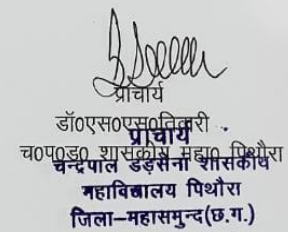 प्राचार्य
डॉ०एस०एस०तिवारी
प्राचार्य
च०प०ड० शासकीय महा० पिथौरा
चन्द्रपाल डड़सेना शासकीय
महाविद्यालय पिथौरा
जिला–महासमुन्द(छ.ग.)